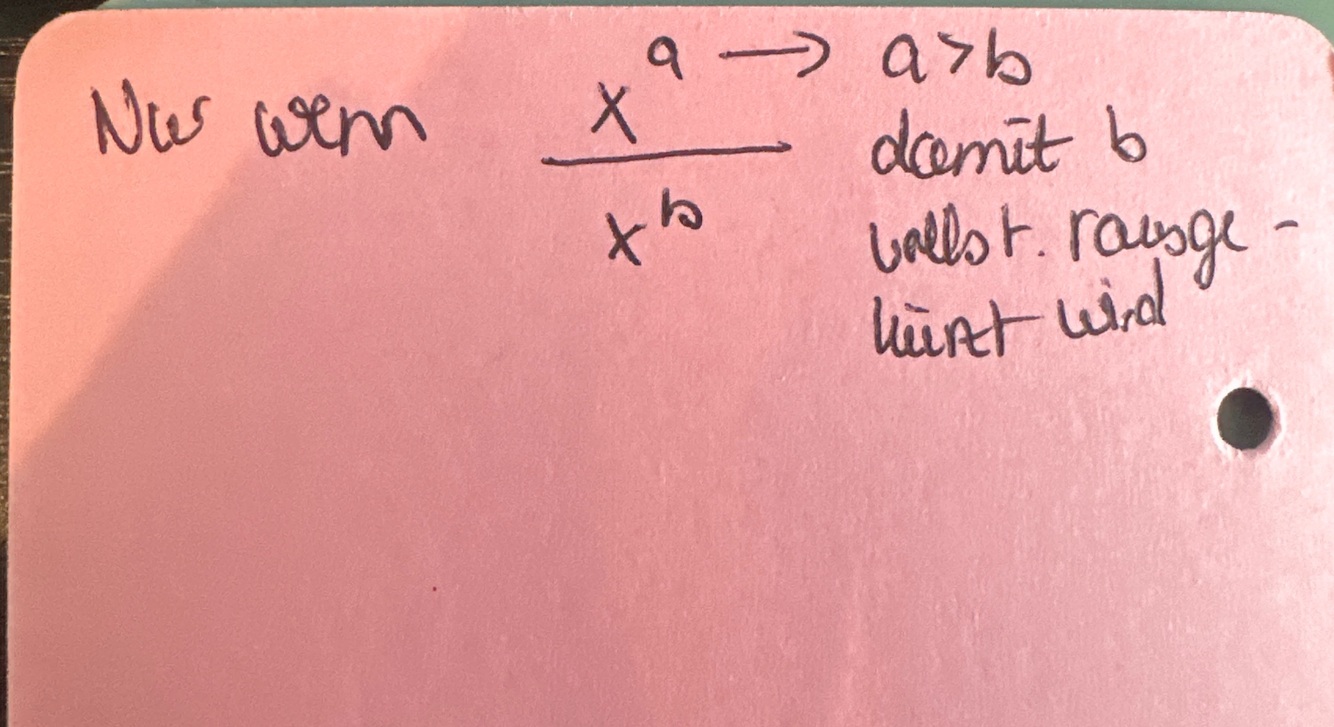 Nur wenn x^a → a>b
damit b
x^b
vollst. rausge-
kürzt wird